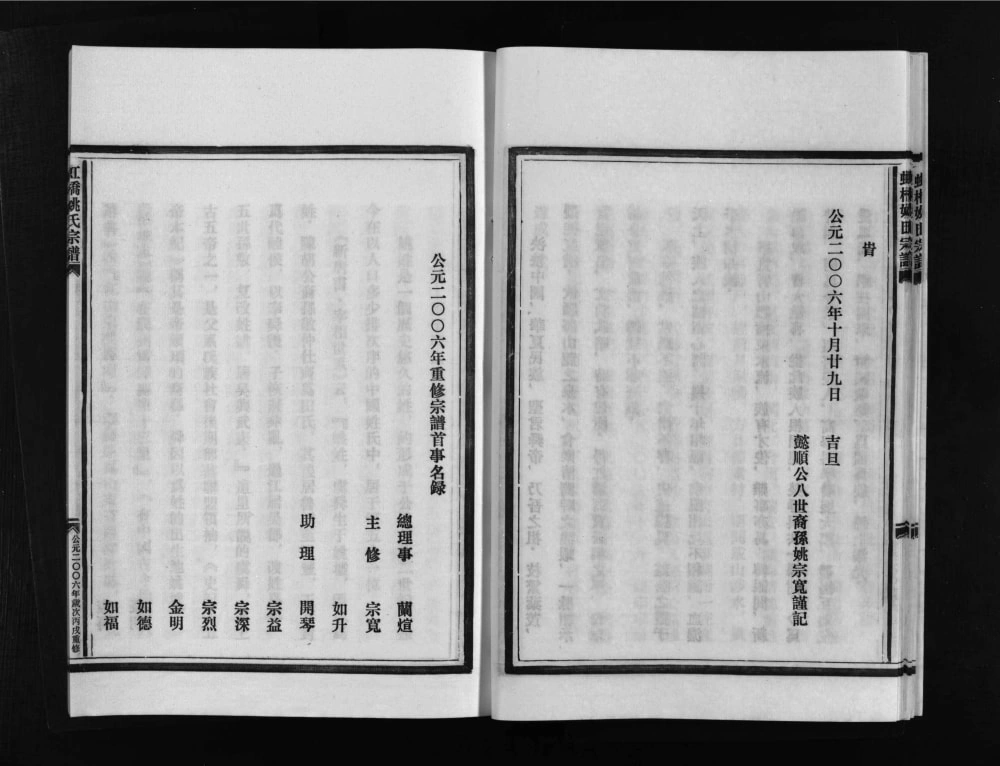 旹
公元二〇〇六年十月廿九日 吉旦
懿順公八世裔孫姚宗寬謹記
公元二〇〇六年重修宗譜首事名録
總理事 蘭煊
主修 宗寬
如升
助理 開琴
宗益
宗深
宗烈
金明
如德
如福
虹橋姚氏宗譜
公元二〇〇六年歲次丙戌重修